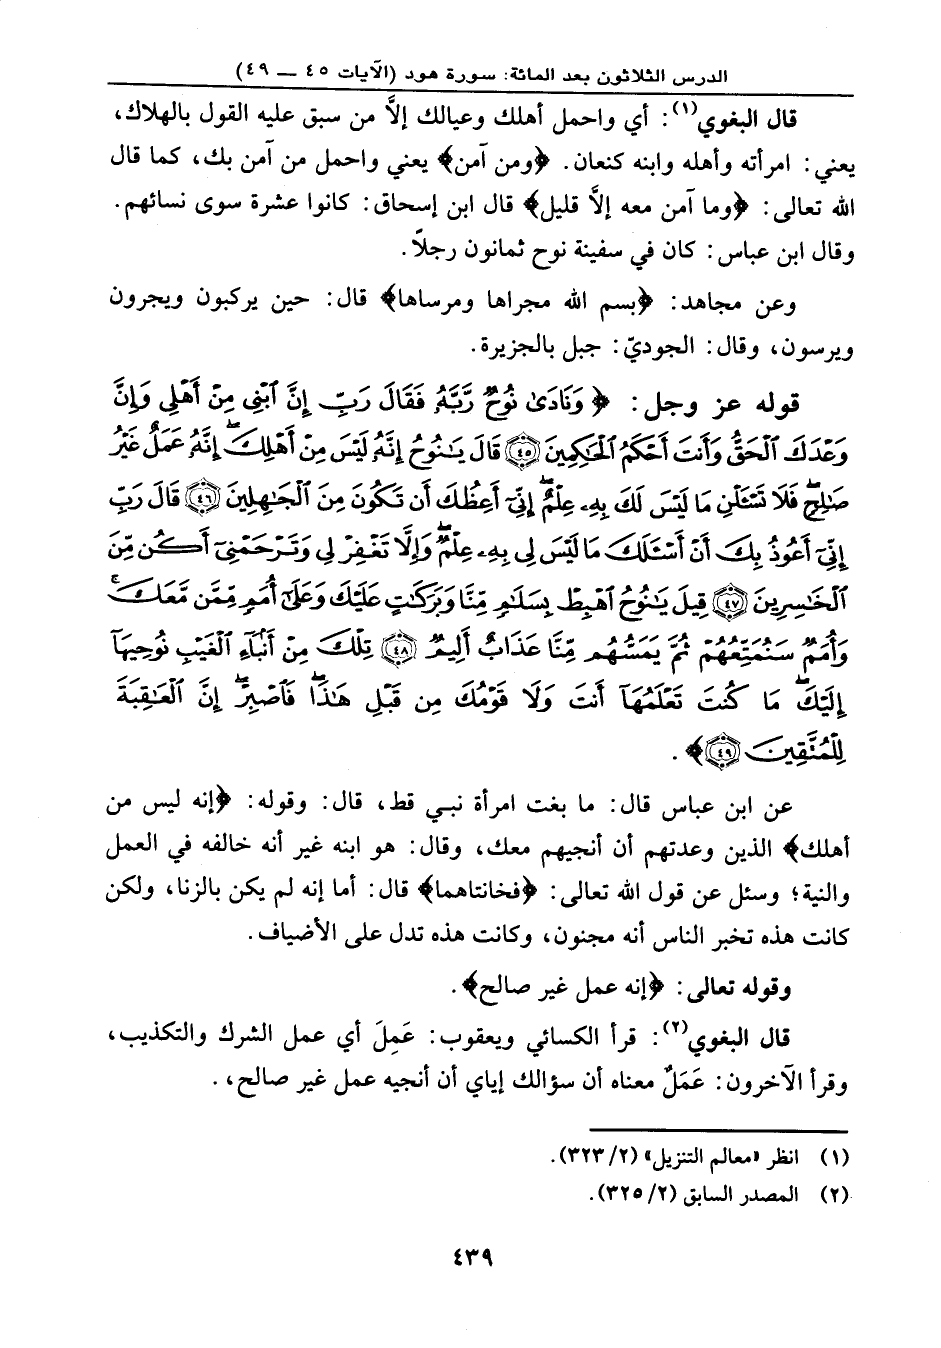 الدرس الثلاثون بعد المائة: سورة هود (الآيات ٤٥ — ٤٩)
قال البغوي(١): أي واحمل أهلك وعيالك إلاَّ من سبق عليه القول بالهلاك،
يعني: امرأته وأهله وابنه كنعان. ﴿ومن آمن﴾ يعني واحمل من آمن بك، كما قال
الله تعالى: ﴿وما آمن معه إلاَّ قليل﴾ قال ابن إسحاق: كانوا عشرة سوى نسائهم.
وقال ابن عباس: كان في سفينة نوح ثمانون رجلاً.
وعن مجاهد: ﴿بسم الله مجراها ومرساها﴾ قال: حين يركبون ويجرون
ويرسون، وقال: الجوديّ: جبل بالجزيرة.
قوله عز وجل: ﴿وَنَادَىٰ نُوحٌ رَّبَّهُۥ فَقَالَ رَبِّ إِنَّ ٱبْنِى مِنْ أَهْلِى وَإِنَّ
وَعْدَكَ ٱلْحَقُّ وَأَنتَ أَحْكَمُ ٱلْحَـٰكِمِينَ ٤٥ قَالَ يَـٰنُوحُ إِنَّهُۥ لَيْسَ مِنْ أَهْلِكَ ۖ إِنَّهُۥ عَمَلٌ غَيْرُ
صَـٰلِحٍ ۖ فَلَا تَسْـَٔلْنِ مَا لَيْسَ لَكَ بِهِۦ عِلْمٌ ۖ إِنِّىٓ أَعِظُكَ أَن تَكُونَ مِنَ ٱلْجَـٰهِلِينَ ٤٦ قَالَ رَبِّ
إِنِّىٓ أَعُوذُ بِكَ أَنْ أَسْـَٔلَكَ مَا لَيْسَ لِى بِهِۦ عِلْمٌ ۖ وَإِلَّا تَغْفِرْ لِى وَتَرْحَمْنِىٓ أَكُن مِّنَ
ٱلْخَـٰسِرِينَ ٤٧ قِيلَ يَـٰنُوحُ ٱهْبِطْ بِسَلَـٰمٍ مِّنَّا وَبَرَكَـٰتٍ عَلَيْكَ وَعَلَىٰٓ أُمَمٍ مِّمَّن مَّعَكَ ۚ
وَأُمَمٌ سَنُمَتِّعُهُمْ ثُمَّ يَمَسُّهُم مِّنَّا عَذَابٌ أَلِيمٌ ٤٨ تِلْكَ مِنْ أَنۢبَآءِ ٱلْغَيْبِ نُوحِيهَآ
إِلَيْكَ ۖ مَا كُنتَ تَعْلَمُهَآ أَنتَ وَلَا قَوْمُكَ مِن قَبْلِ هَـٰذَا ۖ فَٱصْبِرْ ۖ إِنَّ ٱلْعَـٰقِبَةَ
لِلْمُتَّقِينَ ٤٩﴾.
عن ابن عباس قال: ما بغت امرأة نبي قط، قال: وقوله: ﴿إنه ليس من
أهلك﴾ الذين وعدتهم أن أنجيهم معك، وقال: هو ابنه غير أنه خالفه في العمل
والنية؛ وسئل عن قول الله تعالى: ﴿فخانتاهما﴾ قال: أما إنه لم يكن بالزنا، ولكن
كانت هذه تخبر الناس أنه مجنون، وكانت هذه تدل على الأضياف.
وقوله تعالى: ﴿إنه عمل غير صالح﴾.
قال البغوي(٢): قرأ الكسائي ويعقوب: عَمِلَ أي عمل الشرك والتكذيب،
وقرأ الآخرون: عَمَلٌ معناه أن سؤالك إياي أن أنجيه عمل غير صالح،.
(١) انظر «معالم التنزيل» (٣٢٣/٢).
(٢) المصدر السابق (٣٢٥/٢).
٤٣٩